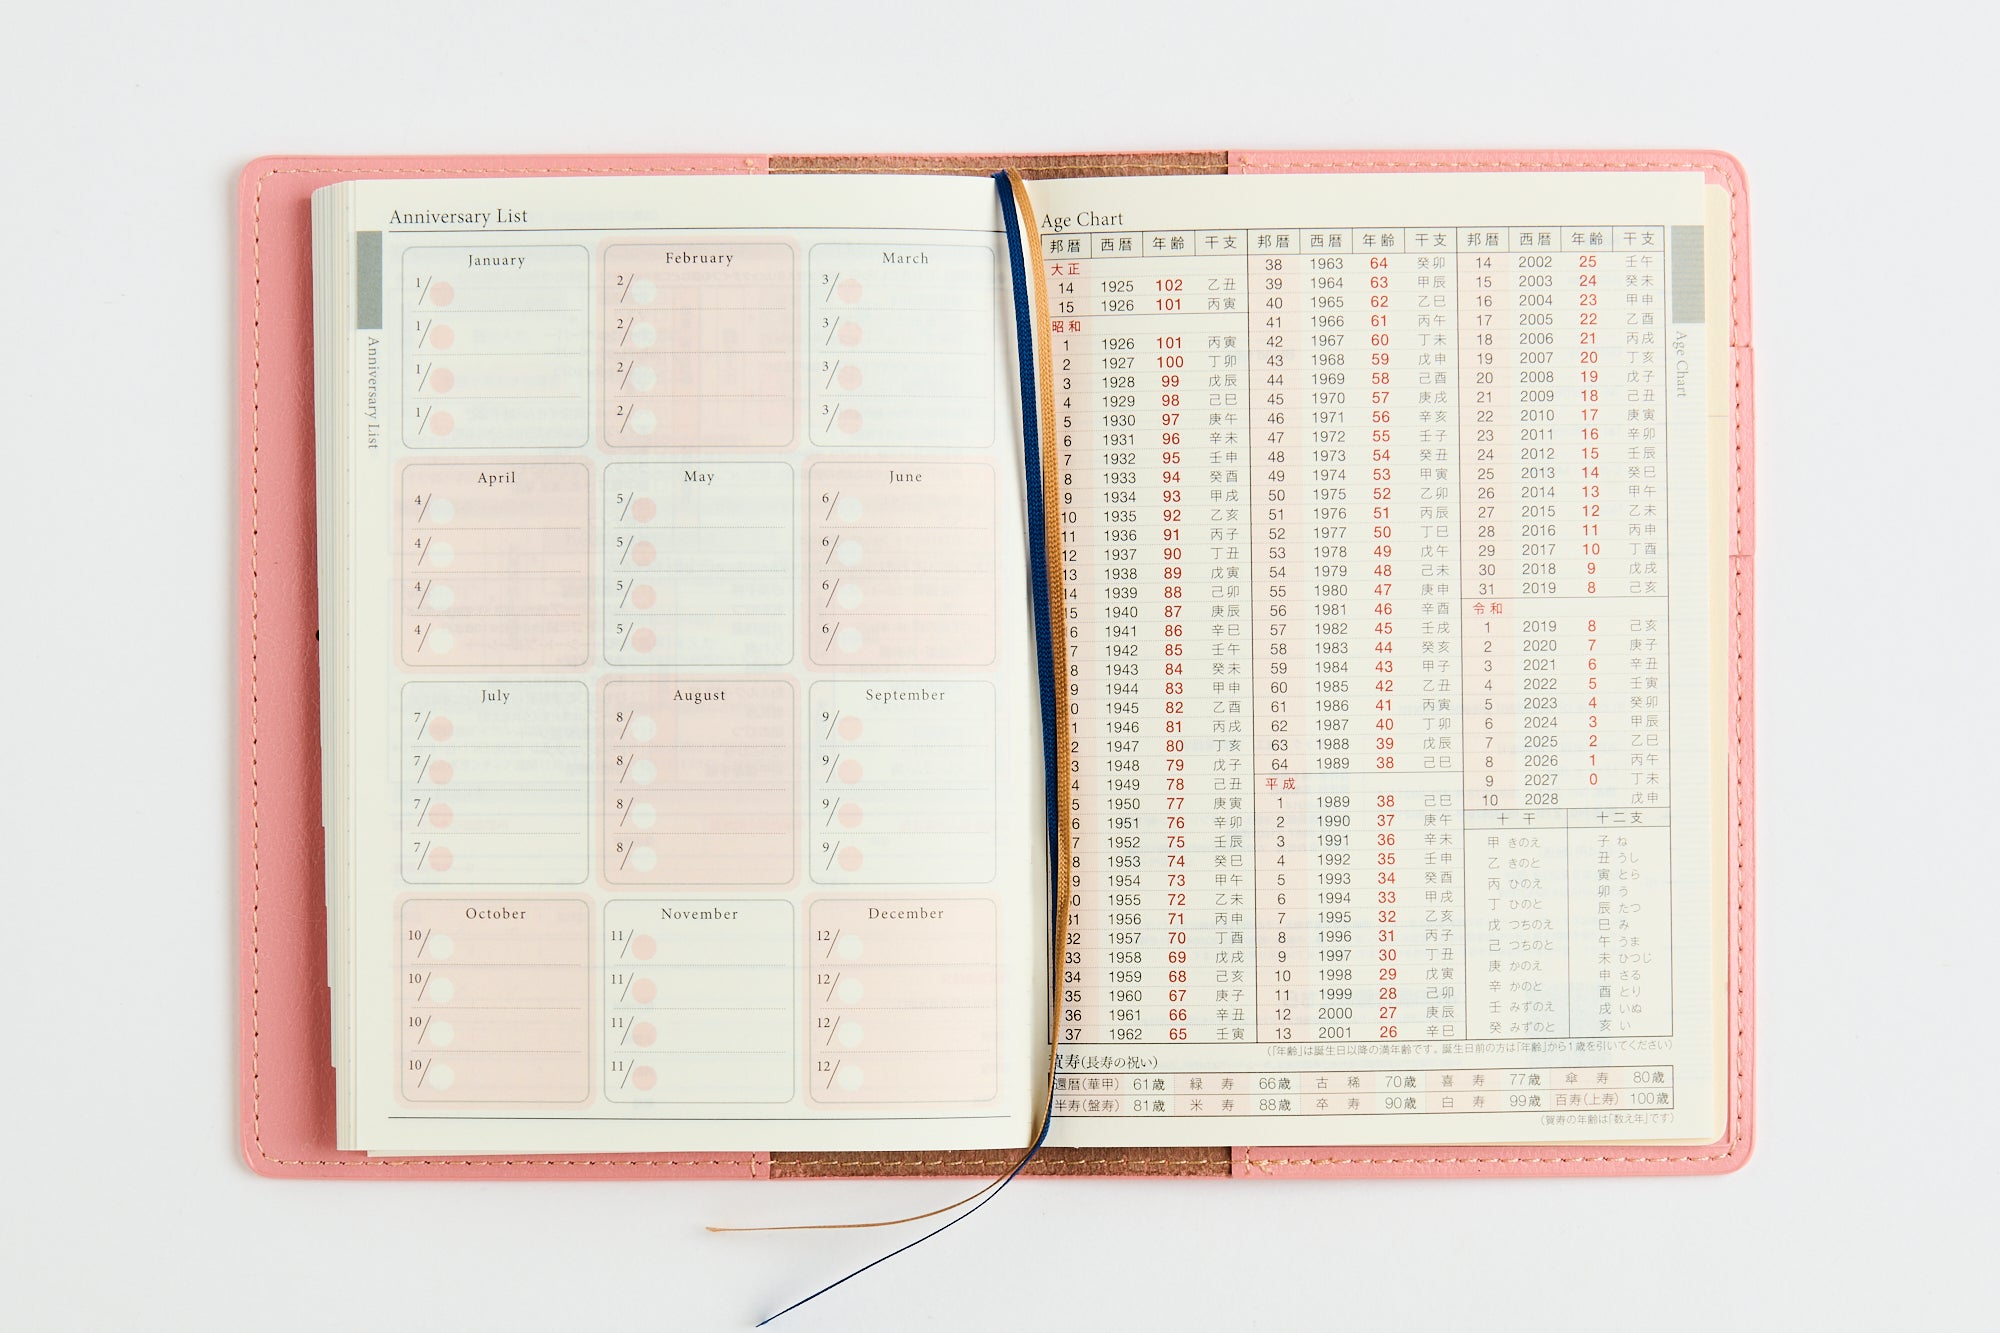 Anniversary List
Anniversary List
January
1/
1/
1/
1/
February
2/
2/
2/
2/
March
3/
3/
3/
3/
April
4/
4/
4/
4/
May
5/
5/
5/
5/
June
6/
6/
6/
6/
July
7/
7/
7/
7/
August
8/
8/
8/
8/
September
9/
9/
9/
9/
October
10/
10/
10/
10/
November
11/
11/
11/
11/
December
12/
12/
12/
12/
Age Chart
Age Chart
邦暦 西暦 年齢 干支
大正
14 1925 102 乙丑
15 1926 101 丙寅
昭和
1 1926 101 丙寅
2 1927 100 丁卯
3 1928 99 戊辰
4 1929 98 己巳
5 1930 97 庚午
6 1931 96 辛未
7 1932 95 壬申
8 1933 94 癸酉
9 1934 93 甲戌
10 1935 92 乙亥
11 1936 91 丙子
12 1937 90 丁丑
13 1938 89 戊寅
14 1939 88 己卯
15 1940 87 庚辰
6 1941 86 辛巳
7 1942 85 壬午
8 1943 84 癸未
9 1944 83 甲申
0 1945 82 乙酉
1 1946 81 丙戌
2 1947 80 丁亥
3 1948 79 戊子
4 1949 78 己丑
5 1950 77 庚寅
6 1951 76 辛卯
7 1952 75 壬辰
8 1953 74 癸巳
9 1954 73 甲午
0 1955 72 乙未
31 1956 71 丙申
32 1957 70 丁酉
33 1958 69 戊戌
34 1959 68 己亥
35 1960 67 庚子
36 1961 66 辛丑
37 1962 65 壬寅
邦暦 西暦 年齢 干支
38 1963 64 癸卯
39 1964 63 甲辰
40 1965 62 乙巳
41 1966 61 丙午
42 1967 60 丁未
43 1968 59 戊申
44 1969 58 己酉
45 1970 57 庚戌
46 1971 56 辛亥
47 1972 55 壬子
48 1973 54 癸丑
49 1974 53 甲寅
50 1975 52 乙卯
51 1976 51 丙辰
52 1977 50 丁巳
53 1978 49 戊午
54 1979 48 己未
55 1980 47 庚申
56 1981 46 辛酉
57 1982 45 壬戌
58 1983 44 癸亥
59 1984 43 甲子
60 1985 42 乙丑
61 1986 41 丙寅
62 1987 40 丁卯
63 1988 39 戊辰
64 1989 38 己巳
平成
1 1989 38 己巳
2 1990 37 庚午
3 1991 36 辛未
4 1992 35 壬申
5 1993 34 癸酉
6 1994 33 甲戌
7 1995 32 乙亥
8 1996 31 丙子
9 1997 30 丁丑
10 1998 29 戊寅
11 1999 28 己卯
12 2000 27 庚辰
13 2001 26 辛巳
邦暦 西暦 年齢 干支
14 2002 25 壬午
15 2003 24 癸未
16 2004 23 甲申
17 2005 22 乙酉
18 2006 21 丙戌
19 2007 20 丁亥
20 2008 19 戊子
21 2009 18 己丑
22 2010 17 庚寅
23 2011 16 辛卯
24 2012 15 壬辰
25 2013 14 癸巳
26 2014 13 甲午
27 2015 12 乙未
28 2016 11 丙申
29 2017 10 丁酉
30 2018 9 戊戌
31 2019 8 己亥
令和
1 2019 8 己亥
2 2020 7 庚子
3 2021 6 辛丑
4 2022 5 壬寅
5 2023 4 癸卯
6 2024 3 甲辰
7 2025 2 乙巳
8 2026 1 丙午
9 2027 0 丁未
10 2028 戊申
十干
甲 きのえ
乙 きのと
丙 ひのえ
丁 ひのと
戊 つちのえ
己 つちのと
庚 かのえ
辛 かのと
壬 みずのえ
癸 みずのと
十二支
子 ね
丑 うし
寅 とら
卯 う
辰 たつ
巳 み
午 うま
未 ひつじ
申 さる
酉 とり
戌 いぬ
亥 い
(「年齢」は誕生日以降の満年齢です。誕生日前の方は「年齢」から1歳を引いてください)
賀寿(長寿の祝い)
還暦(華甲) 61歳 緑寿 66歳 古稀 70歳 喜寿 77歳 傘寿 80歳
半寿(盤寿) 81歳 米寿 88歳 卒寿 90歳 白寿 99歳 百寿(上寿) 100歳
(賀寿の年齢は「数え年」です)